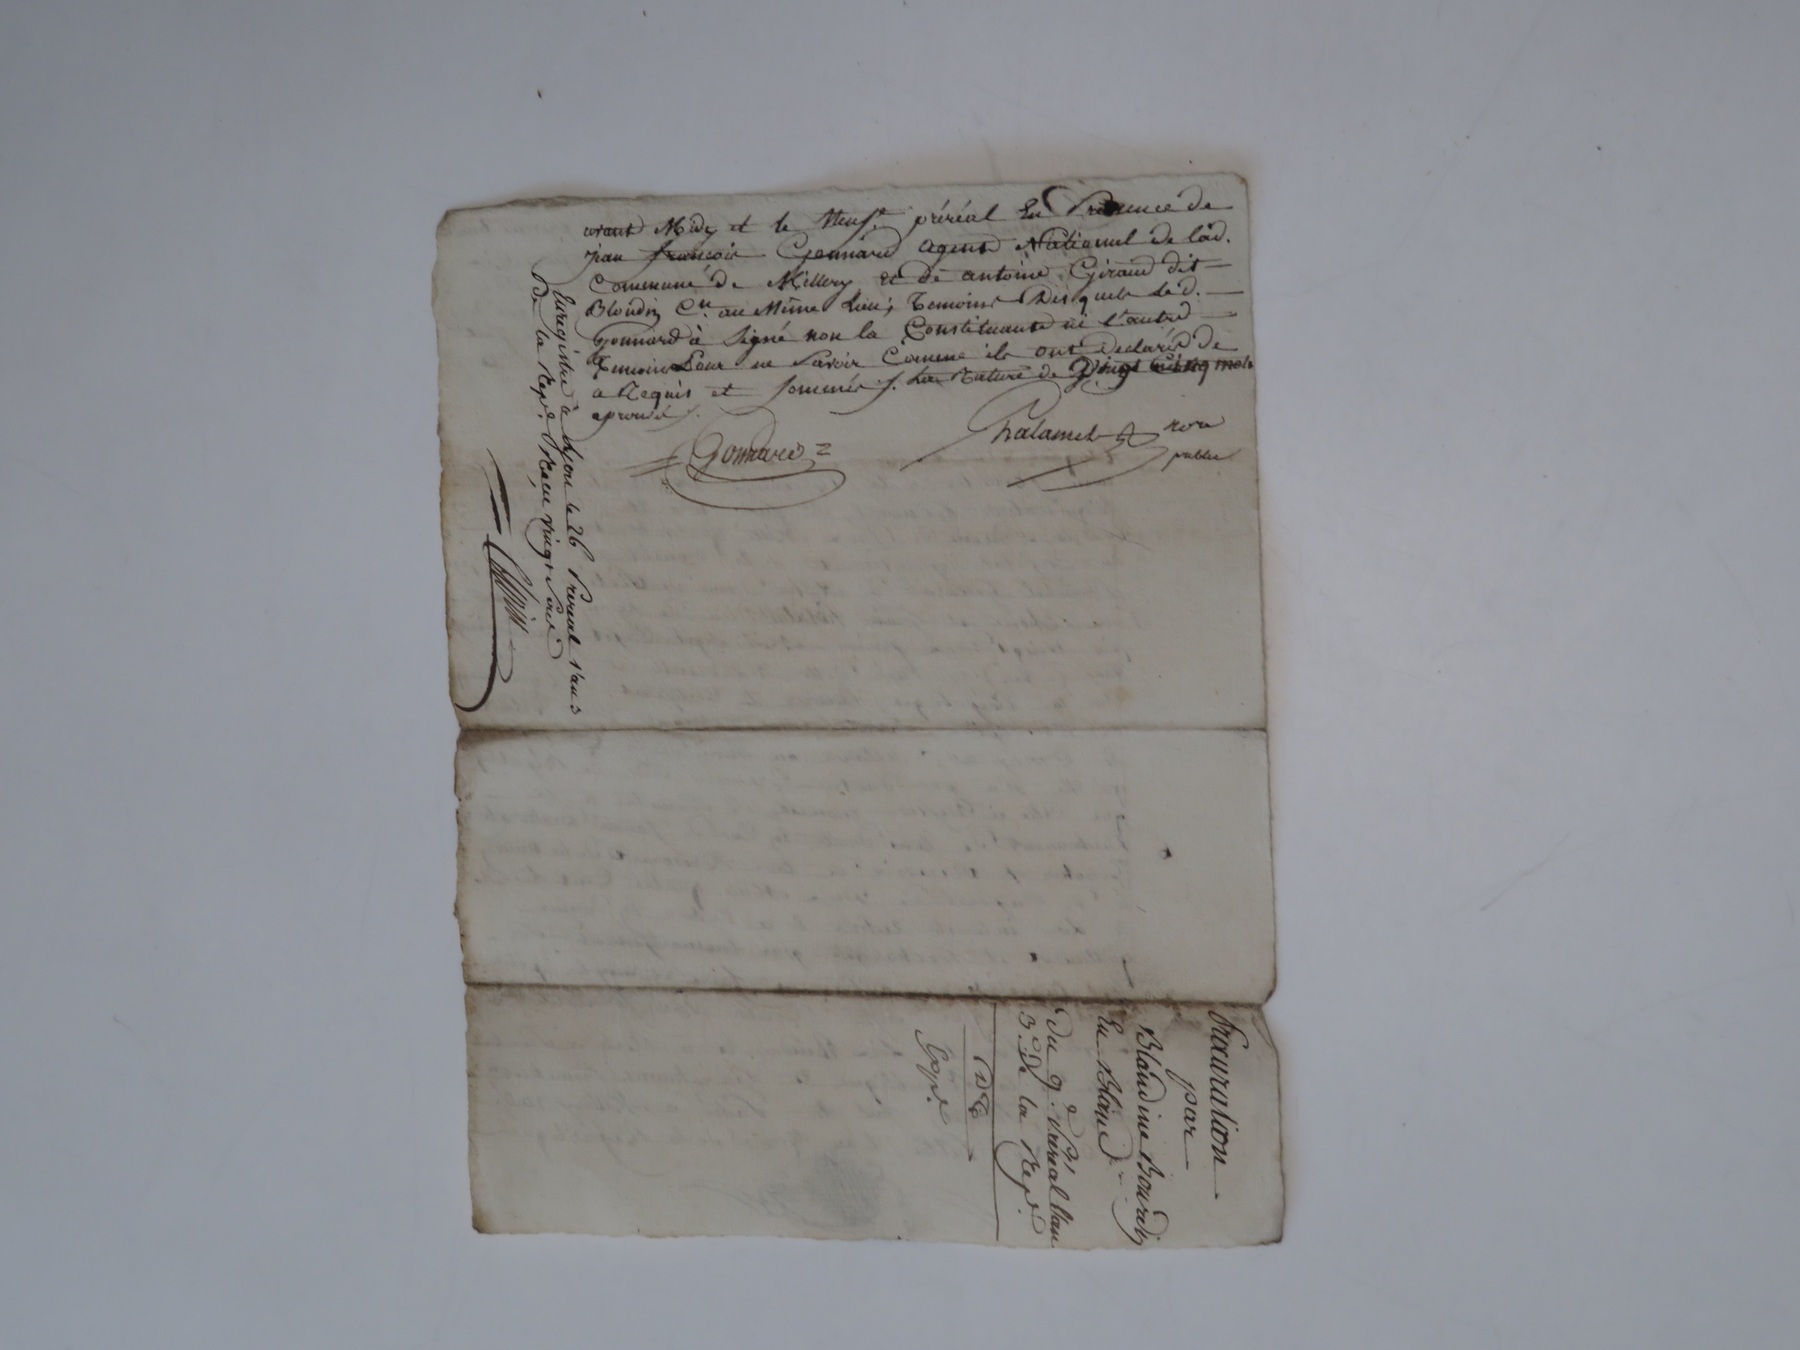 avant Midy et le Neufe. préréal En Présence de
jean françois Gonnard agent National de lad.
Commune de Millery et de antoine Giraud dit
Blondin Cn. au Même Lieu; Temoins Des quels led.
gonnard à Signé non la Constituante ni l'autre
Temoin Pour ne Savoir Comme ils ont declarés de
a Requis et Sommés /. La Rature de Vingt cinq mots
aprouvé /.
Gonnard
Chalamel not
public
Enregistré à Lyon le 26 Prereal l'an 3
De la Repe. Reçu vingt sols
Procuration
par
Blandine Bourdy
En Blanc
du 9e. Préréal l'an
3e De la Repe.
Expe.